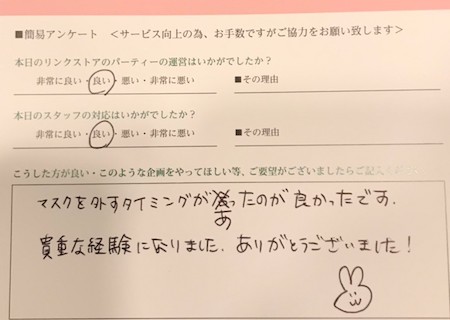 ■簡易アンケート　＜サービス向上の為、お手数ですがご協力をお願い致します＞
本日のリンクストアのパーティーの運営はいかがでしたか？
非常に良い・良い・悪い・非常に悪い　■その理由
本日のスタッフの対応はいかがでしたか？
非常に良い・良い・悪い・非常に悪い　■その理由
こうした方が良い・このような企画をやってほしい等、ご要望がございましたらご記入
マスクを外すタイミングがあったのが良かったです.
貴重な経験になりました. ありがとうございました！